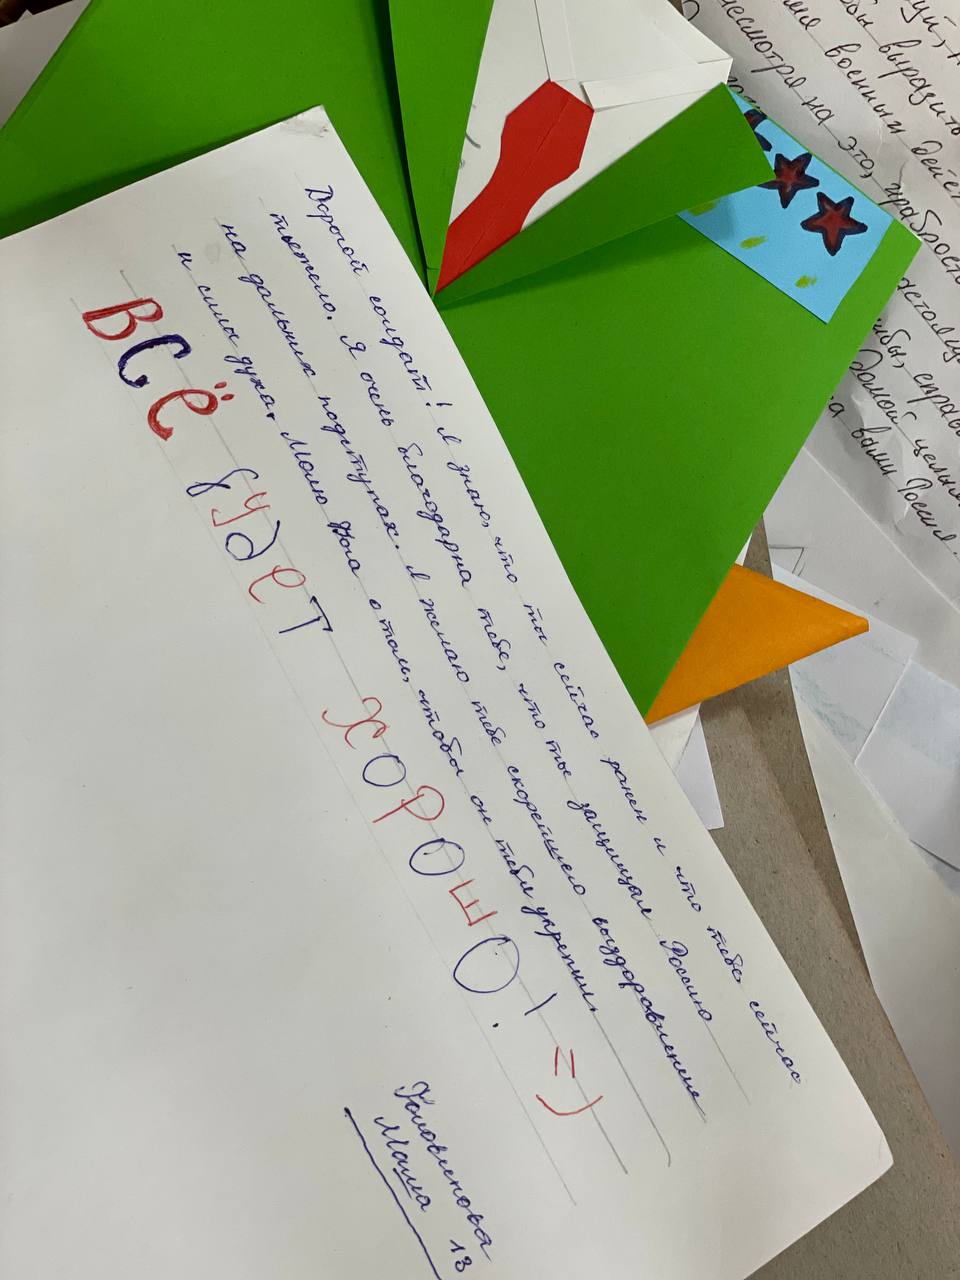 Дорогой солдат! Я знаю, что ты сейчас ранен и что тебе, сейчас
тяжело. Я очень благодарна тебе, что ты защищал Россию
на дальних подступах. Я желаю тебе скорейшего выздоровления
и силы духа. Молю Бога о том, чтобы он тебя укрепил.
ВСЁ будет ХОРОШО! =)
Маша 13
выразить
военных дейст
несмотря на это, храброст
справ
домой целым
вами Россия.